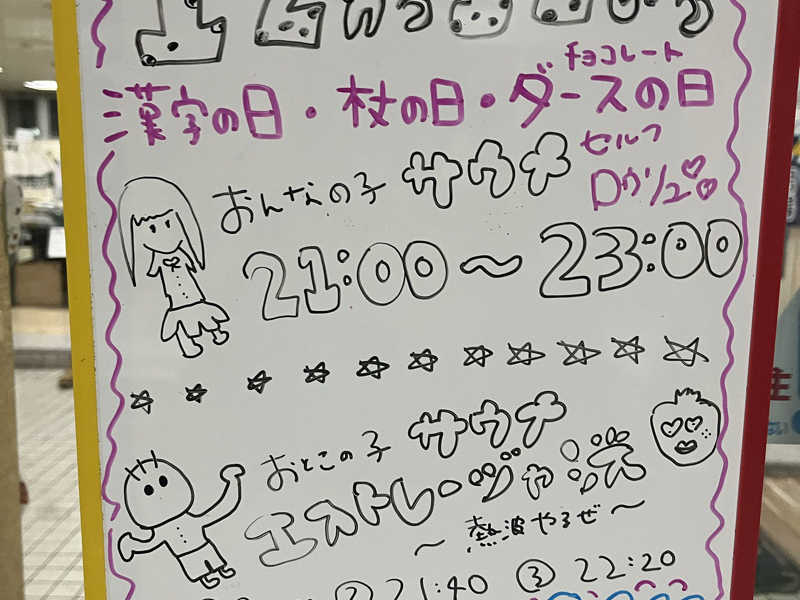 チョコレート
漢字の日・杖の日・ダースの日
おんなの子 サウナ セルフ
ロウリュ
21:00～23:00
おとこの子 サウナ
エストレージャ渋
～熱波やるぜ～
② 21:40 ③ 22:20